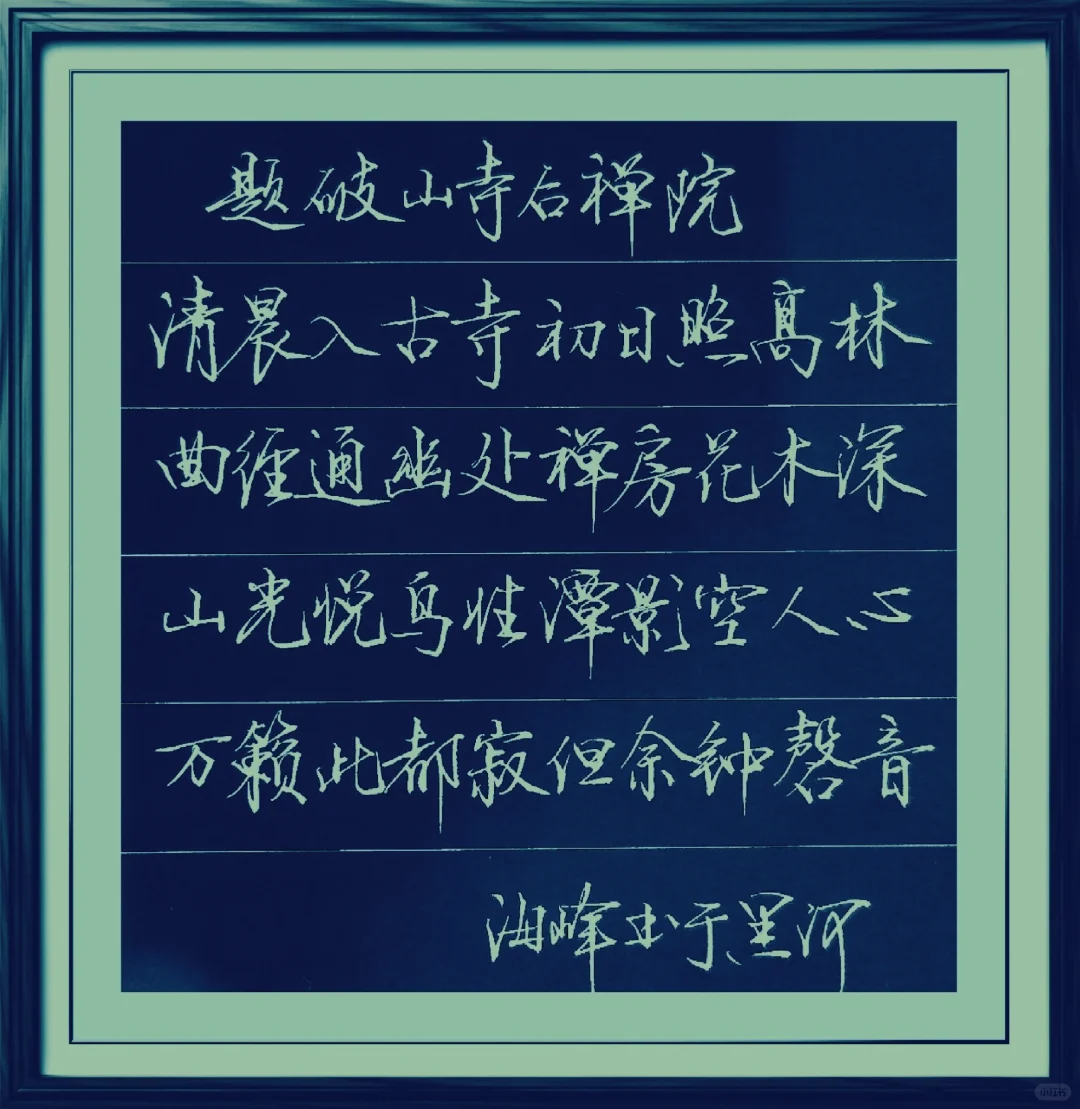 题破山寺后禅院
清晨入古寺初日照高林
曲径通幽处禅房花木深
山光悦鸟性潭影空人心
万籁此都寂但余钟磬音
海峰书于黑河
小红书